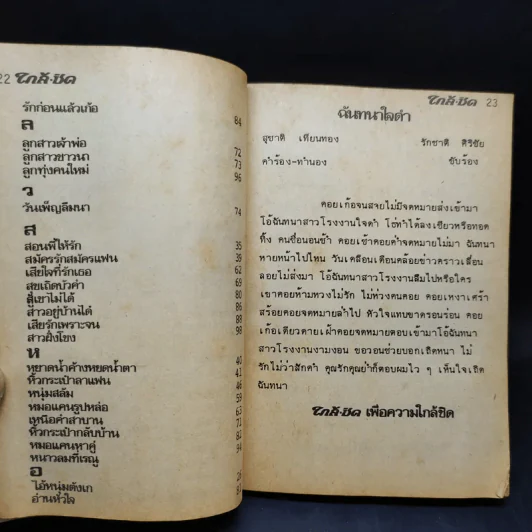 22 ใกล้·ชิด
รักก่อนแล้วเก้อ 84
ล
ลูกสาวเจ้าพ่อ 72
ลูกสาวชาวนา 73
ลูกทุ่งคนใหม่ 96
ว
วันเพ็ญลืมนา 74
ส
สอนพี่ให้รัก 35
สมัครรักสมัครแฟน 39
เสียใจที่รักเธอ 62
สุขเถิดบัวคำ 69
สู่เขาไม่ได้ 80
สาวอยู่บ้านได๋ 86
เสียรักเพราะจน 88
สาวฝั่งโขง 98
ห
หยาดน้ำค้างหยดน้ำตา 40
หิ้วกระเป๋าลาแฟน 41
หนุ่มสลัม 46
หมอแคนรูปหล่อ 59
เหนือคำสาบาน 63
หิ้วกระเป๋ากลับบ้าน 71
หมอแคนหาคู่ 82
หนาวลมที่เรณู 94
อ
ไอ้หนุ่มตังเก 26
อ่านหัวใจ
ใกล้·ชิด 23
ฉันทนาใจดำ
สุชาติ เทียนทอง รักชาติ ศิริชัย
คำร้อง-ทำนอง ขับร้อง
คอยเก้อจนสายไม่มีจดหมายส่งเข้ามา
โอ้ฉันทนาสาวโรงงานใจดำ โธ่ทำได้ลงเชียวหรือทอด
ทิ้ง คนชื่อนอนช้ำ คอยเช้าคอยค่ำจดหมายไม่มา ฉันทนา
หายหน้าไปไหน วันเคลื่อนเดือนคล้อยข่าวคราวเลื่อน
ลอยไม่ส่งมา โอ้ฉันทนาสาวโรงงานลืมไปหรือใคร
เขาคอยห้ามหวงไม่รัก ไม่ห่วงคนคอย คอยเหงาเศร้า
สร้อยคอยจดหมายลำไป หัวใจแทบขาดรอนร่อน คอย
เก้อเดียวดายเฝ้าคอยจดหมายตอบเข้ามาโอ้ฉันทนา
สาวโรงงานงามงอน ขอวอนช่วยบอกเถิดหนา ไม่
รักไม่ว่าสักคำ คุณรักคุณย้ำก็ตอบผมไว ๆ เห็นใจเถิด
ฉันทนา
ใกล้·ชิด เพื่อความใกล้ชิด